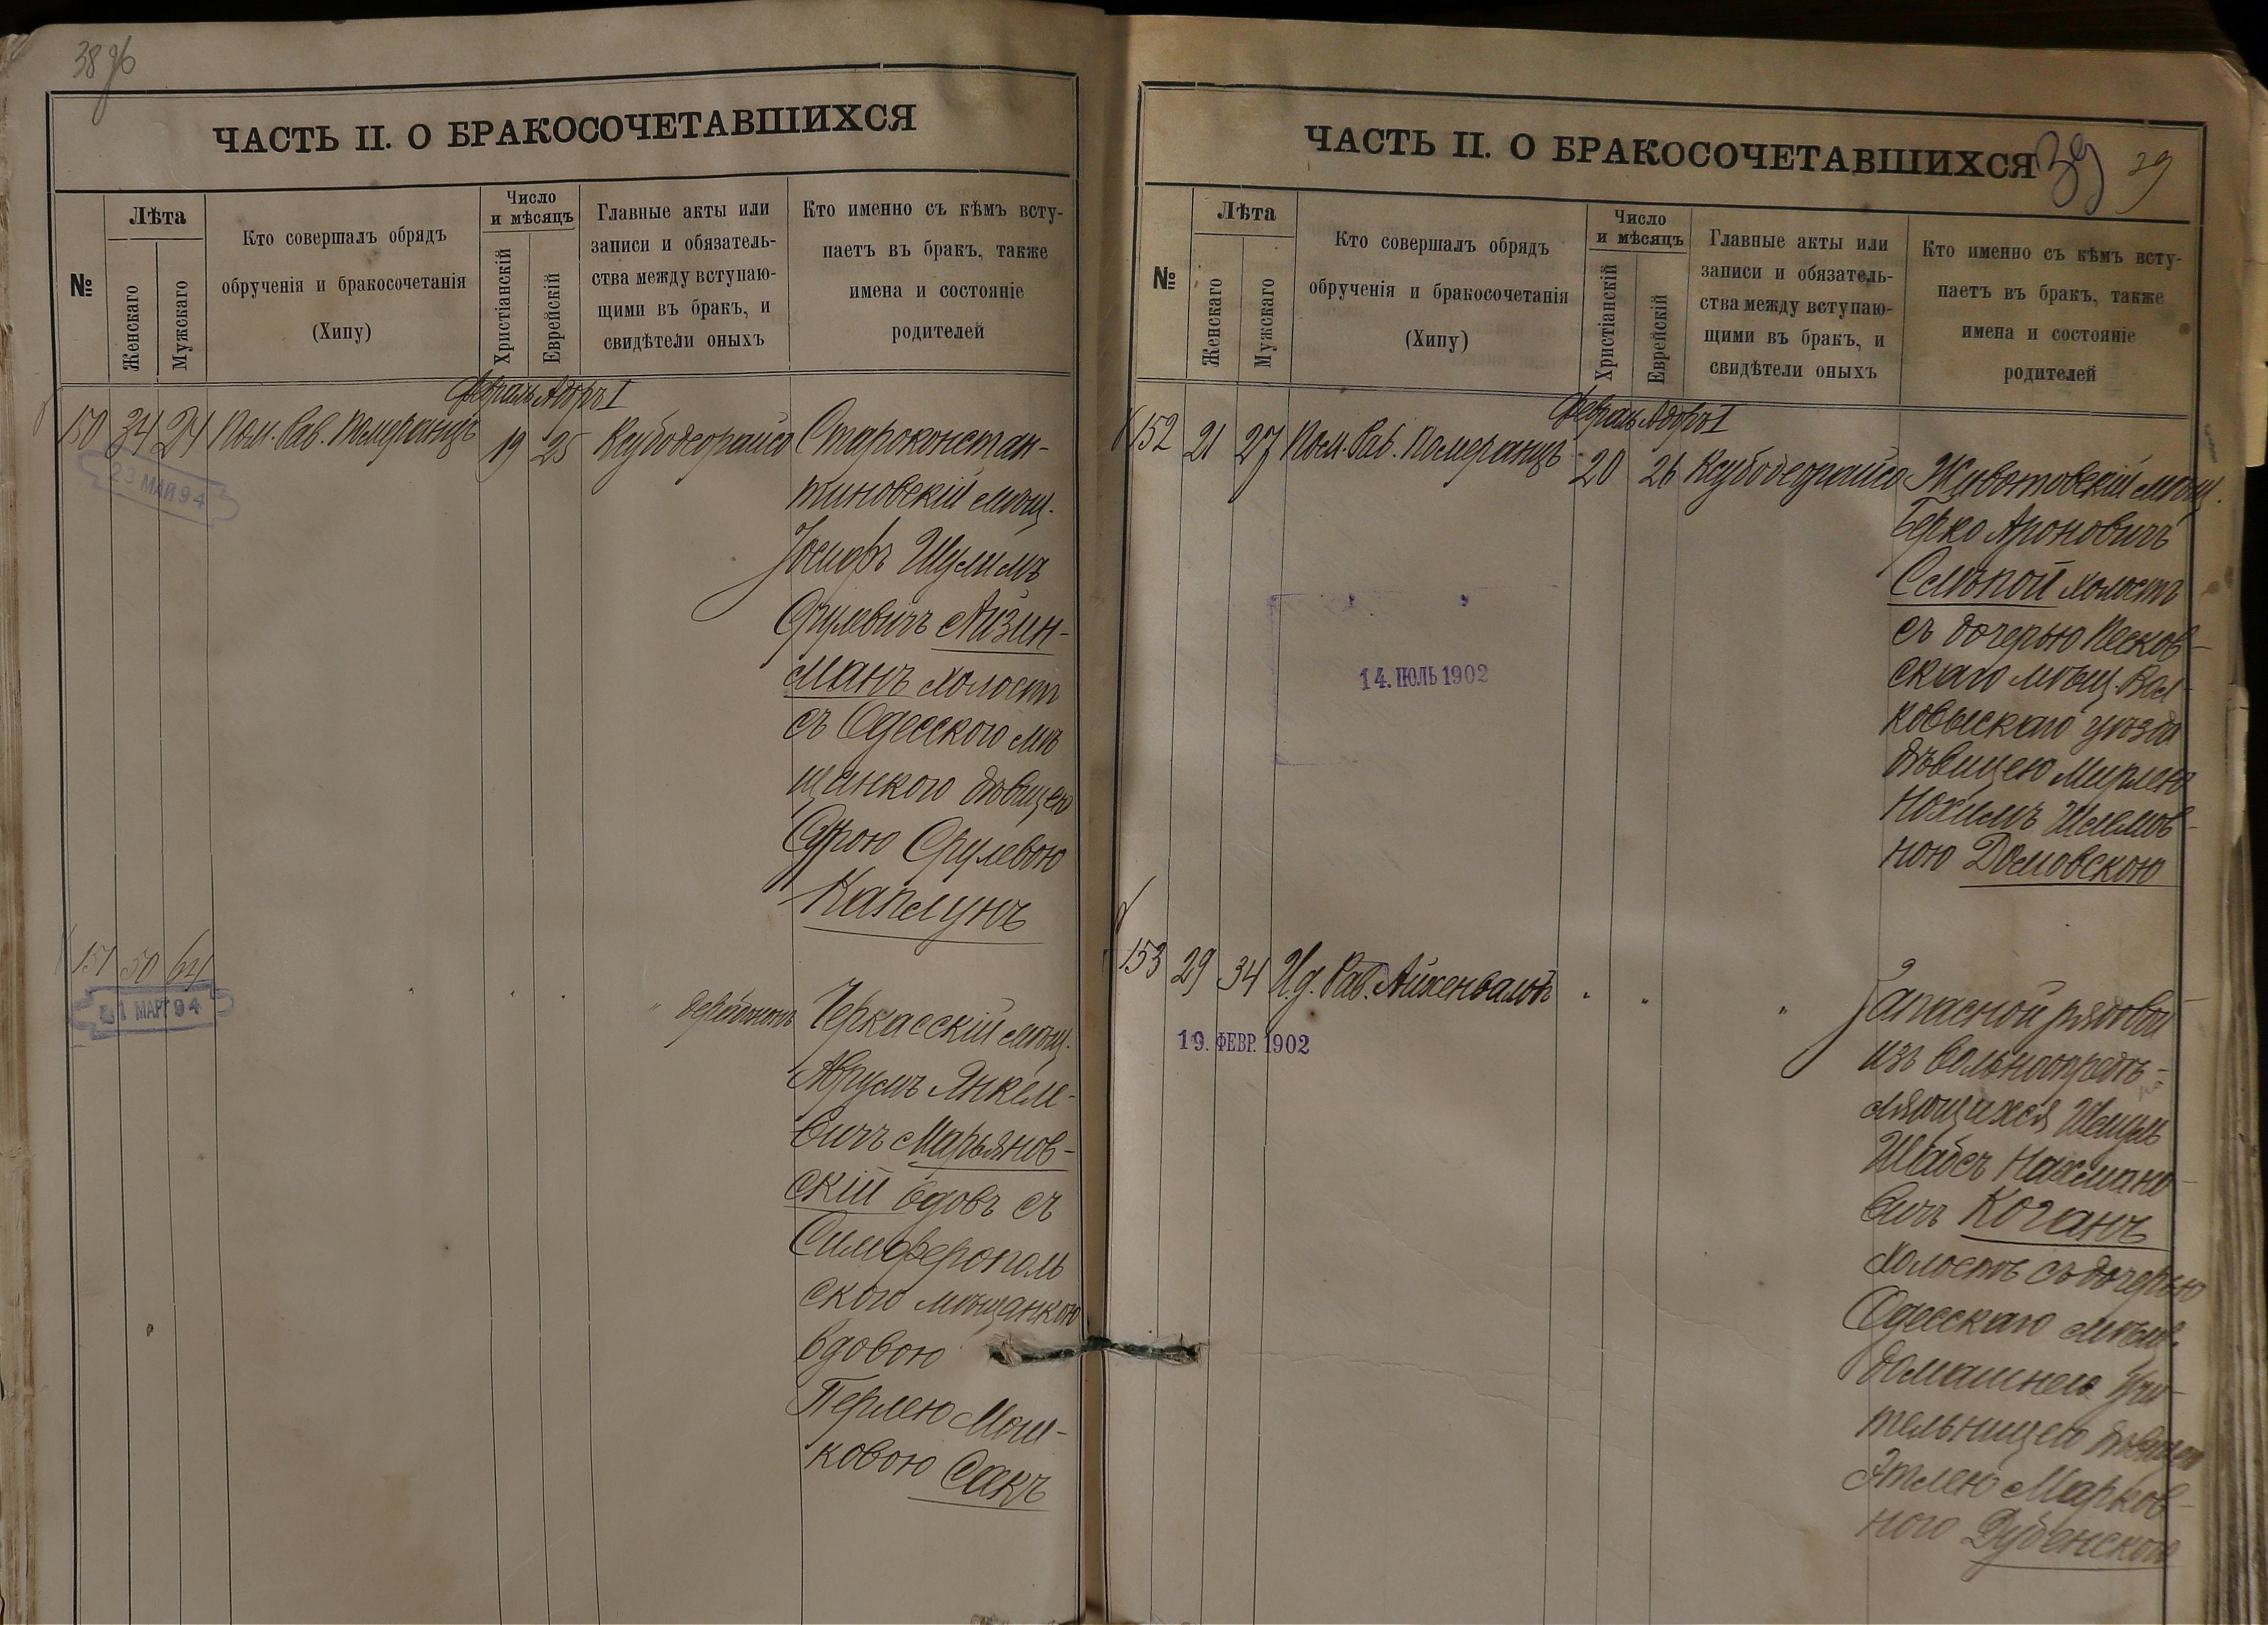 38 об
ЧАСТЬ II. О БРАКОСОЧЕТАВШИХСЯ
№
Лѣта
Женскаго
Мужскаго
Кто совершалъ обрядъ
обрученія и бракосочетанія
(Хипу)
Число
и мѣсяцъ
Христіанскій
Еврейскій
Главные акты или
записи и обязатель-
ства между вступаю-
щими въ бракъ, и
свидѣтели оныхъ
Кто именно съ кѣмъ всту-
паетъ въ брак, также
имена и состояніе
родителей
Февраль Адоръ I
150 34 24 Пом. Рав. Померанцъ 19 25 Ксубодеорайсо Староконстан-
тиновскій мѣщ.
Іосифъ Шулимъ
Срулевичъ Айзин-
манъ холостъ
съ Одесскою мѣ
щанкою дѣвицею
Сурою Срулевою
Каплунъ
23 МАЙ 94
151 50 64 " " " " дерабононъ Черкасскій мѣщ.
Аврумъ Янкеле-
вичъ Марьянов-
скій вдовъ съ
Симферополь
скою мѣщанкою
вдовою
Перлею Мош-
ковою Сакъ
1 МАР 94
ЧАСТЬ II. О БРАКОСОЧЕТАВШИХСЯ
39 39
№
Лѣта
Женскаго
Мужскаго
Кто совершалъ обрядъ
обрученія и бракосочетанія
(Хипу)
Число
и мѣсяцъ
Христіанскій
Еврейскій
Главные акты или
записи и обязатель-
ства между вступаю-
щими въ бракъ, и
свидѣтели оныхъ
Кто именно съ кѣмъ всту-
паетъ въ бракъ, также
имена и состояніе
родителей
Февраль Адоръ I
152 21 27 Пом. Рав. Померанцъ 20 26 Ксубодеорайсо Животовскій мѣщ.
Берко Ароновичъ
Слѣпой холостъ
съ дочерью Песков-
скаго мѣщ. Вол-
ковыскаго уѣзда
дѣвицею Мирлею
Нохимъ Шлемов-
ною Домовскою
14. ІЮЛЬ 1902
153 29 34 И.д. Рав. Айхенвальдъ " " " Запасной рядовой
изъ вольноопредѣ-
ляющихся Шмуль
Шабсъ Нахмано-
вичъ Коганъ
холостъ съ дочерью
Одесскаго мѣщ.
домашнею учи-
тельницею дѣвицею
Этлею Марков-
ною Дубенскою
19. ФЕВР. 1902